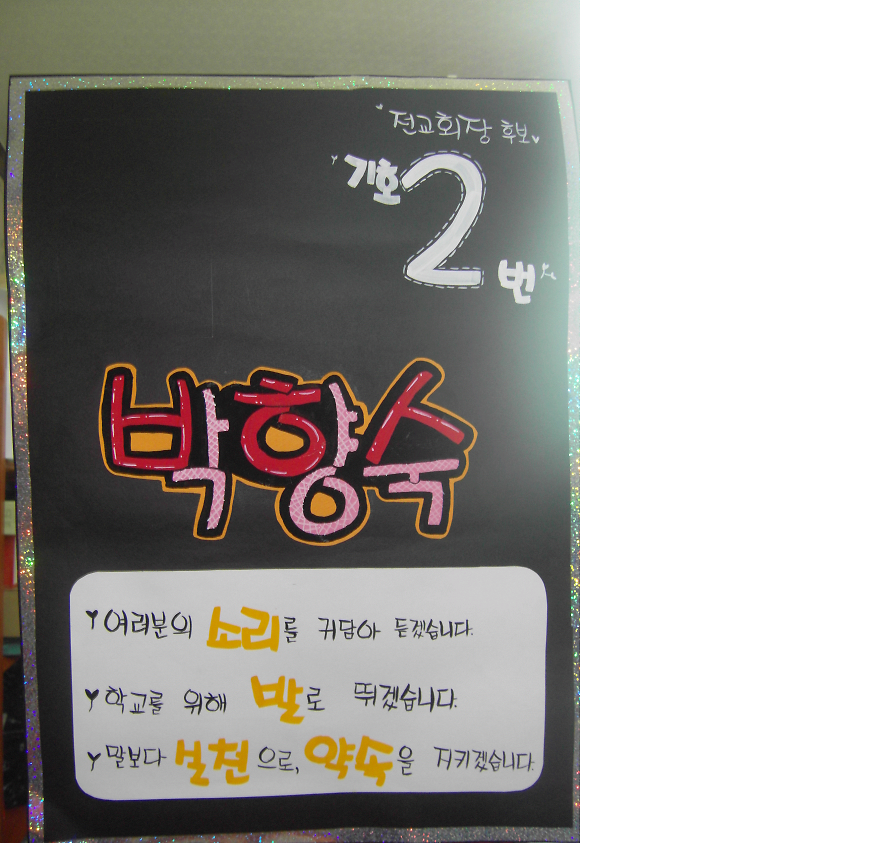 전교회장 후보
기호 2 번
박향숙
여러분의 소리를 귀담아 듣겠습니다.
학교를 위해 발로 뛰겠습니다.
말보다 실천으로, 약속을 지키겠습니다.